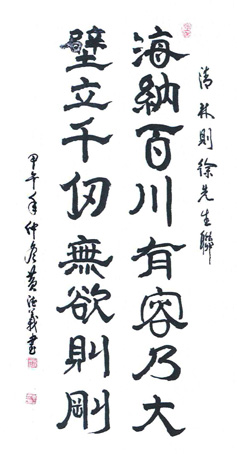 清林則徐先生聯
海納百川有容乃大
壁立千仞無欲則剛
甲午年仲彥黃浩義書